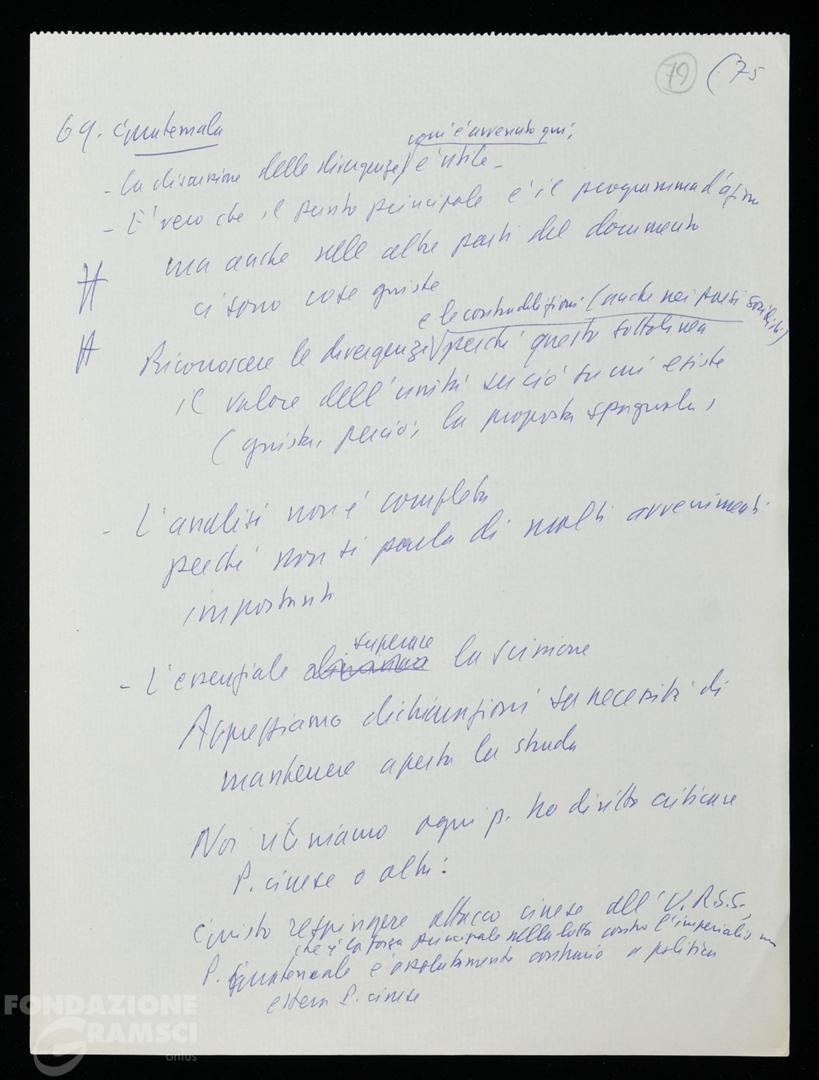 79 (75
69. Guatemala
com'è avvenuto qui,
- La discussione delle divergenze, è utile -
- E' vero che il punto principale è il programma d'azione
ma anche nelle altre parti del documento
ci sono cose giuste
e le contraddizioni (anche nei paesi socialisti)
Riconoscere le divergenze perché questo sottolinea
il valore dell'unità su ciò su cui esiste
(giusta, perciò, la proposta spagnola)
- L'analisi non è completa
perché non si parla di molti avvenimenti
importanti
superare
- L'essenziale la scissione
Apprezziamo dichiarazioni su necessità di
mantenere aperta la strada
Noi riteniamo ogni p. ha diritto criticare
P. cinese o altri:
Giusto respingere attacco cinese all'U.R.S.S.,
che è la forza principale nella lotta contro l'imperialismo
P. Guatemala è assolutamente contrario a politica
estera P. cinese
FONDAZIONE
GRAMSCI
onlus